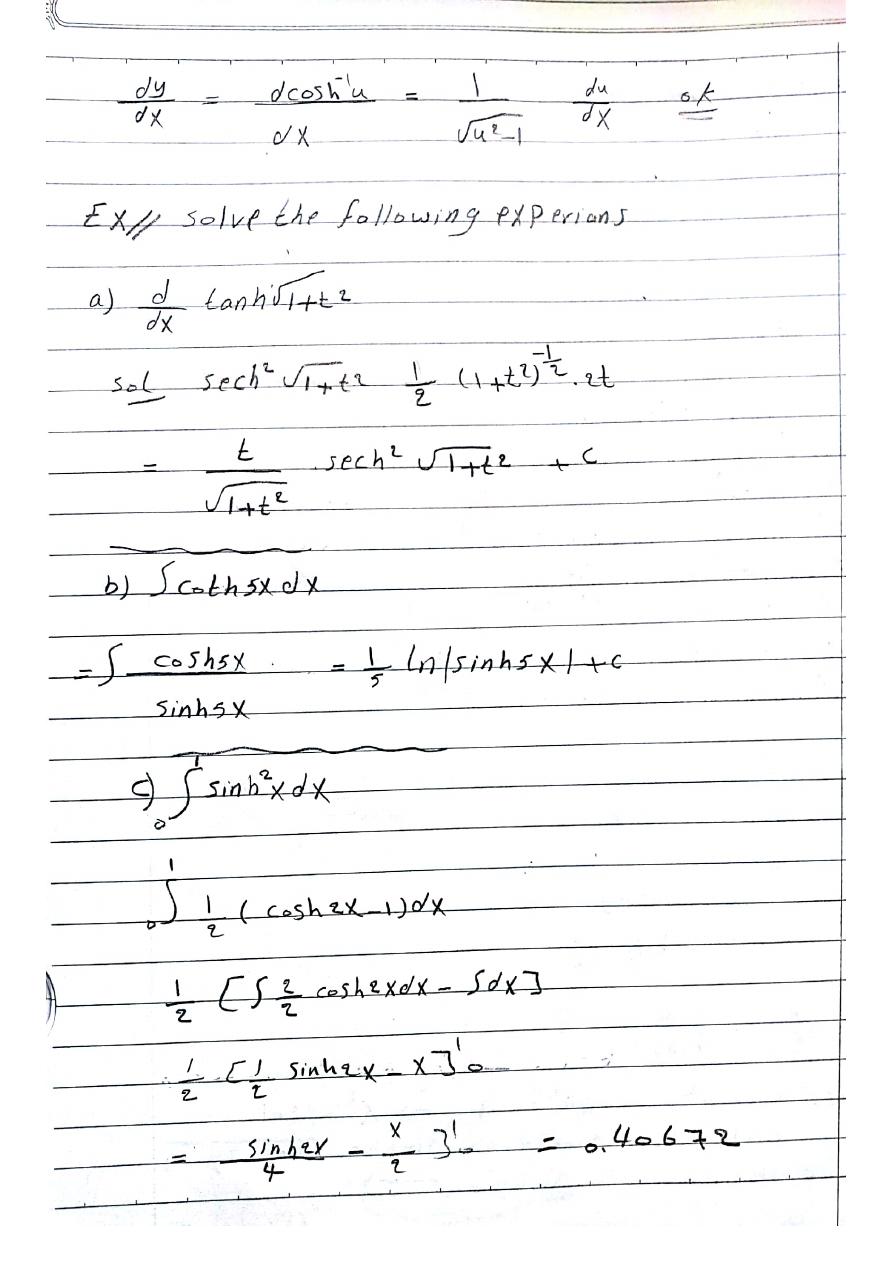 dy/dx = dcosh⁻¹u/dx = 1/√u²-1 du/dx ok
EX// solve the following experians
a) d/dx tanh√1+t²
sol sech² √1+t² 1/2 (1+t²)^-1/2 . 2t
= t/√1+t² . sech² √1+t² + c
b) ∫coth5x dx
= ∫ cosh5x/sinh5x = 1/5 ln|sinh5x|+c
c) ∫₀¹ sinh²x dx
∫₀¹ 1/2 (cosh2x-1)dx
1/2 [∫ 2/2 cosh2xdx - ∫dx]
1/2 [1/2 sinh2x - x]¹₀
= sinh2x/4 - x/2 ]¹₀ = 0.40672